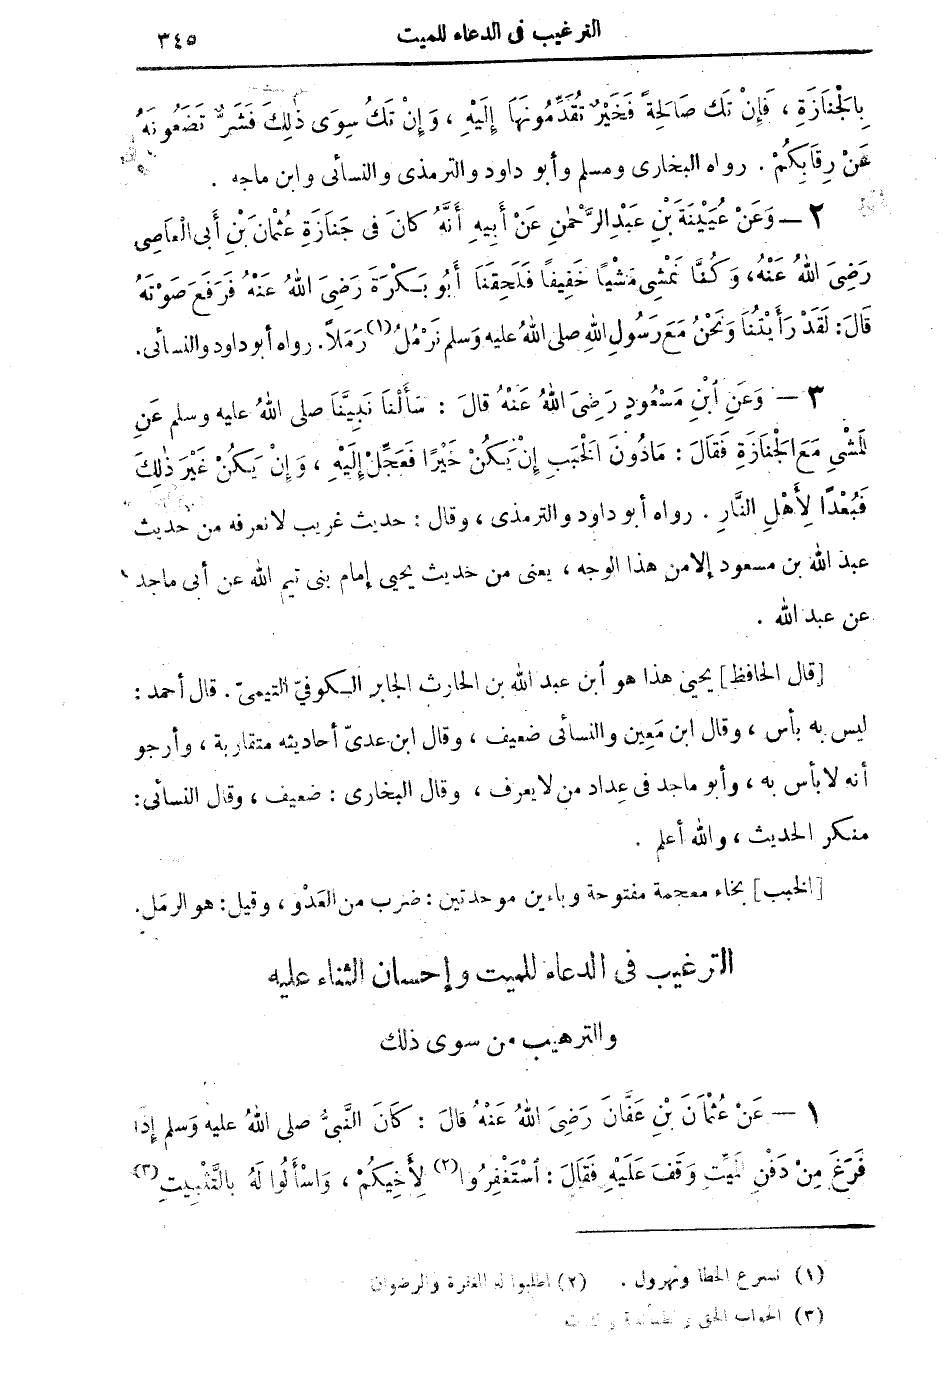 الترغيب فى الدعاء للميت ٣٤٥
بِالْجَنَازَةِ ، فَإِنْ تَكُ صَالِحَةً فَخَيْرٌ تُقَدِّمُونَهَا إِلَيْهِ ، وَإِنْ تَكُ سِوَى ذٰلِكَ فَشَرٌّ تَضَعُونَهُ
عَنْ رِقَابِكُمْ . رواه البخارى ومسلم وأبو داود والترمذى والنسائى وابن ماجه .
٢ — وَعَنْ عُيَيْنَةَ بْنِ عَبْدِ الرَّحْمٰنِ عَنْ أَبِيهِ أَنَّهُ كَانَ فى جَنَازَةِ عُثْمَانَ بْنِ أَبى الْعَاصِى
رَضِىَ اللهُ عَنْهُ، وَكُنَّا نَمْشِى مَشْيًا خَفِيفًا فَلَحِقَنَا أَبُو بَكْرَةَ رَضِىَ اللهُ عَنْهُ فَرَفَعَ صَوْتَهُ
قَالَ: لَقَدْ رَأَيْتُنَا وَنَحْنُ مَعَ رَسُولِ اللهِ صلى اللهُ عليه وَسلم نَرْمُلُ (١) رَمَلاً. رواه أبو داود والنسائى.
٣ — وَعَنِ ابْنِ مَسْعُودٍ رَضِىَ اللهُ عَنْهُ قالَ : سَأَلْنَا نَبِيَّنَا صلى اللهُ عليه وسلم عَنِ
لْمَشْىِ مَعَ الْجَنَازَةِ فَقَالَ : مَادُونَ الْخَبَبِ إِنْ يَكُنْ خَيْرًا فَعَجِّلْ إِلَيْهِ ، وَإِنْ يَكُنْ غَيْرَ ذٰلِكَ
فَبُعْدًا لِأَهْلِ النَّارِ . رواه أبو داود والترمذى ، وقال : حديث غريب لانعرفه من حديث
عبد الله بن مسعود إلا من هذا الوجه ، يعنى من حديث يحيى إمام بنى تيم الله عن أبى ماجد
عن عبد الله .
[قال الحافظ] يحيى هذا هو ابن عبد الله بن الحارث الجابر الكوفىّ التيمىّ . قال أحمد :
ليس به بأس ، وقال ابن مَعِين والنسائى ضعيف ، وقال ابن عدىّ أحاديثه متقاربة ، وأرجو
أنه لا بأس به ، وأبو ماجد فى عِداد من لايعرف ، وقال البخارى : ضعيف ، وقال النسائى :
منكر الحديث ، والله أعلم .
[الخبب] بخاء معجمة مفتوحة وباءين موحدتين : ضرب من العَدْو ، وقيل : هو الرمَل .
الترغيب فى الدعاء للميت وإحسان الثناء عليه
والترهيب من سوى ذلك
١ — عَنْ عُثْمَانَ بْنِ عَفَّانَ رَضِىَ اللهُ عَنْهُ قالَ : كَانَ النَّبِىُّ صلى اللهُ عليه وَسلم إِذَا
فَرَغَ مِنْ دَفْنِ لْمَيِّتِ وَقَفَ عَلَيْهِ فَقَالَ : اسْتَغْفِرُوا (٢) لِأَخِيكُمْ ، وَاسْأَلُوا لَهُ بِالتَّثْبِيتِ (٣)
(١) نسرع الخطا ونهرول . (٢) اطلبوا له المغفرة والرضوان
(٣) الجواب الحق و